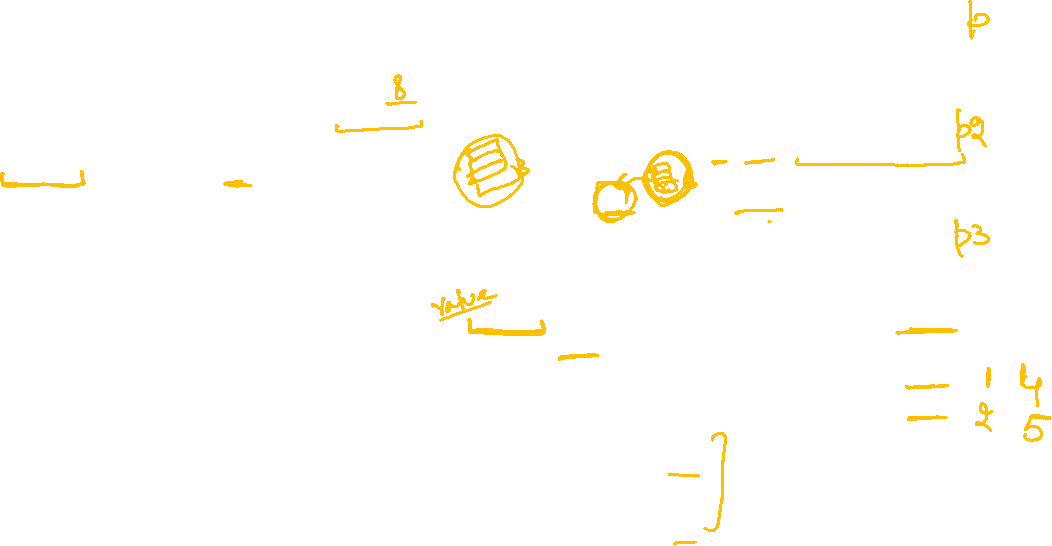 p
8
p2
B
p3
value
1 4
2 5